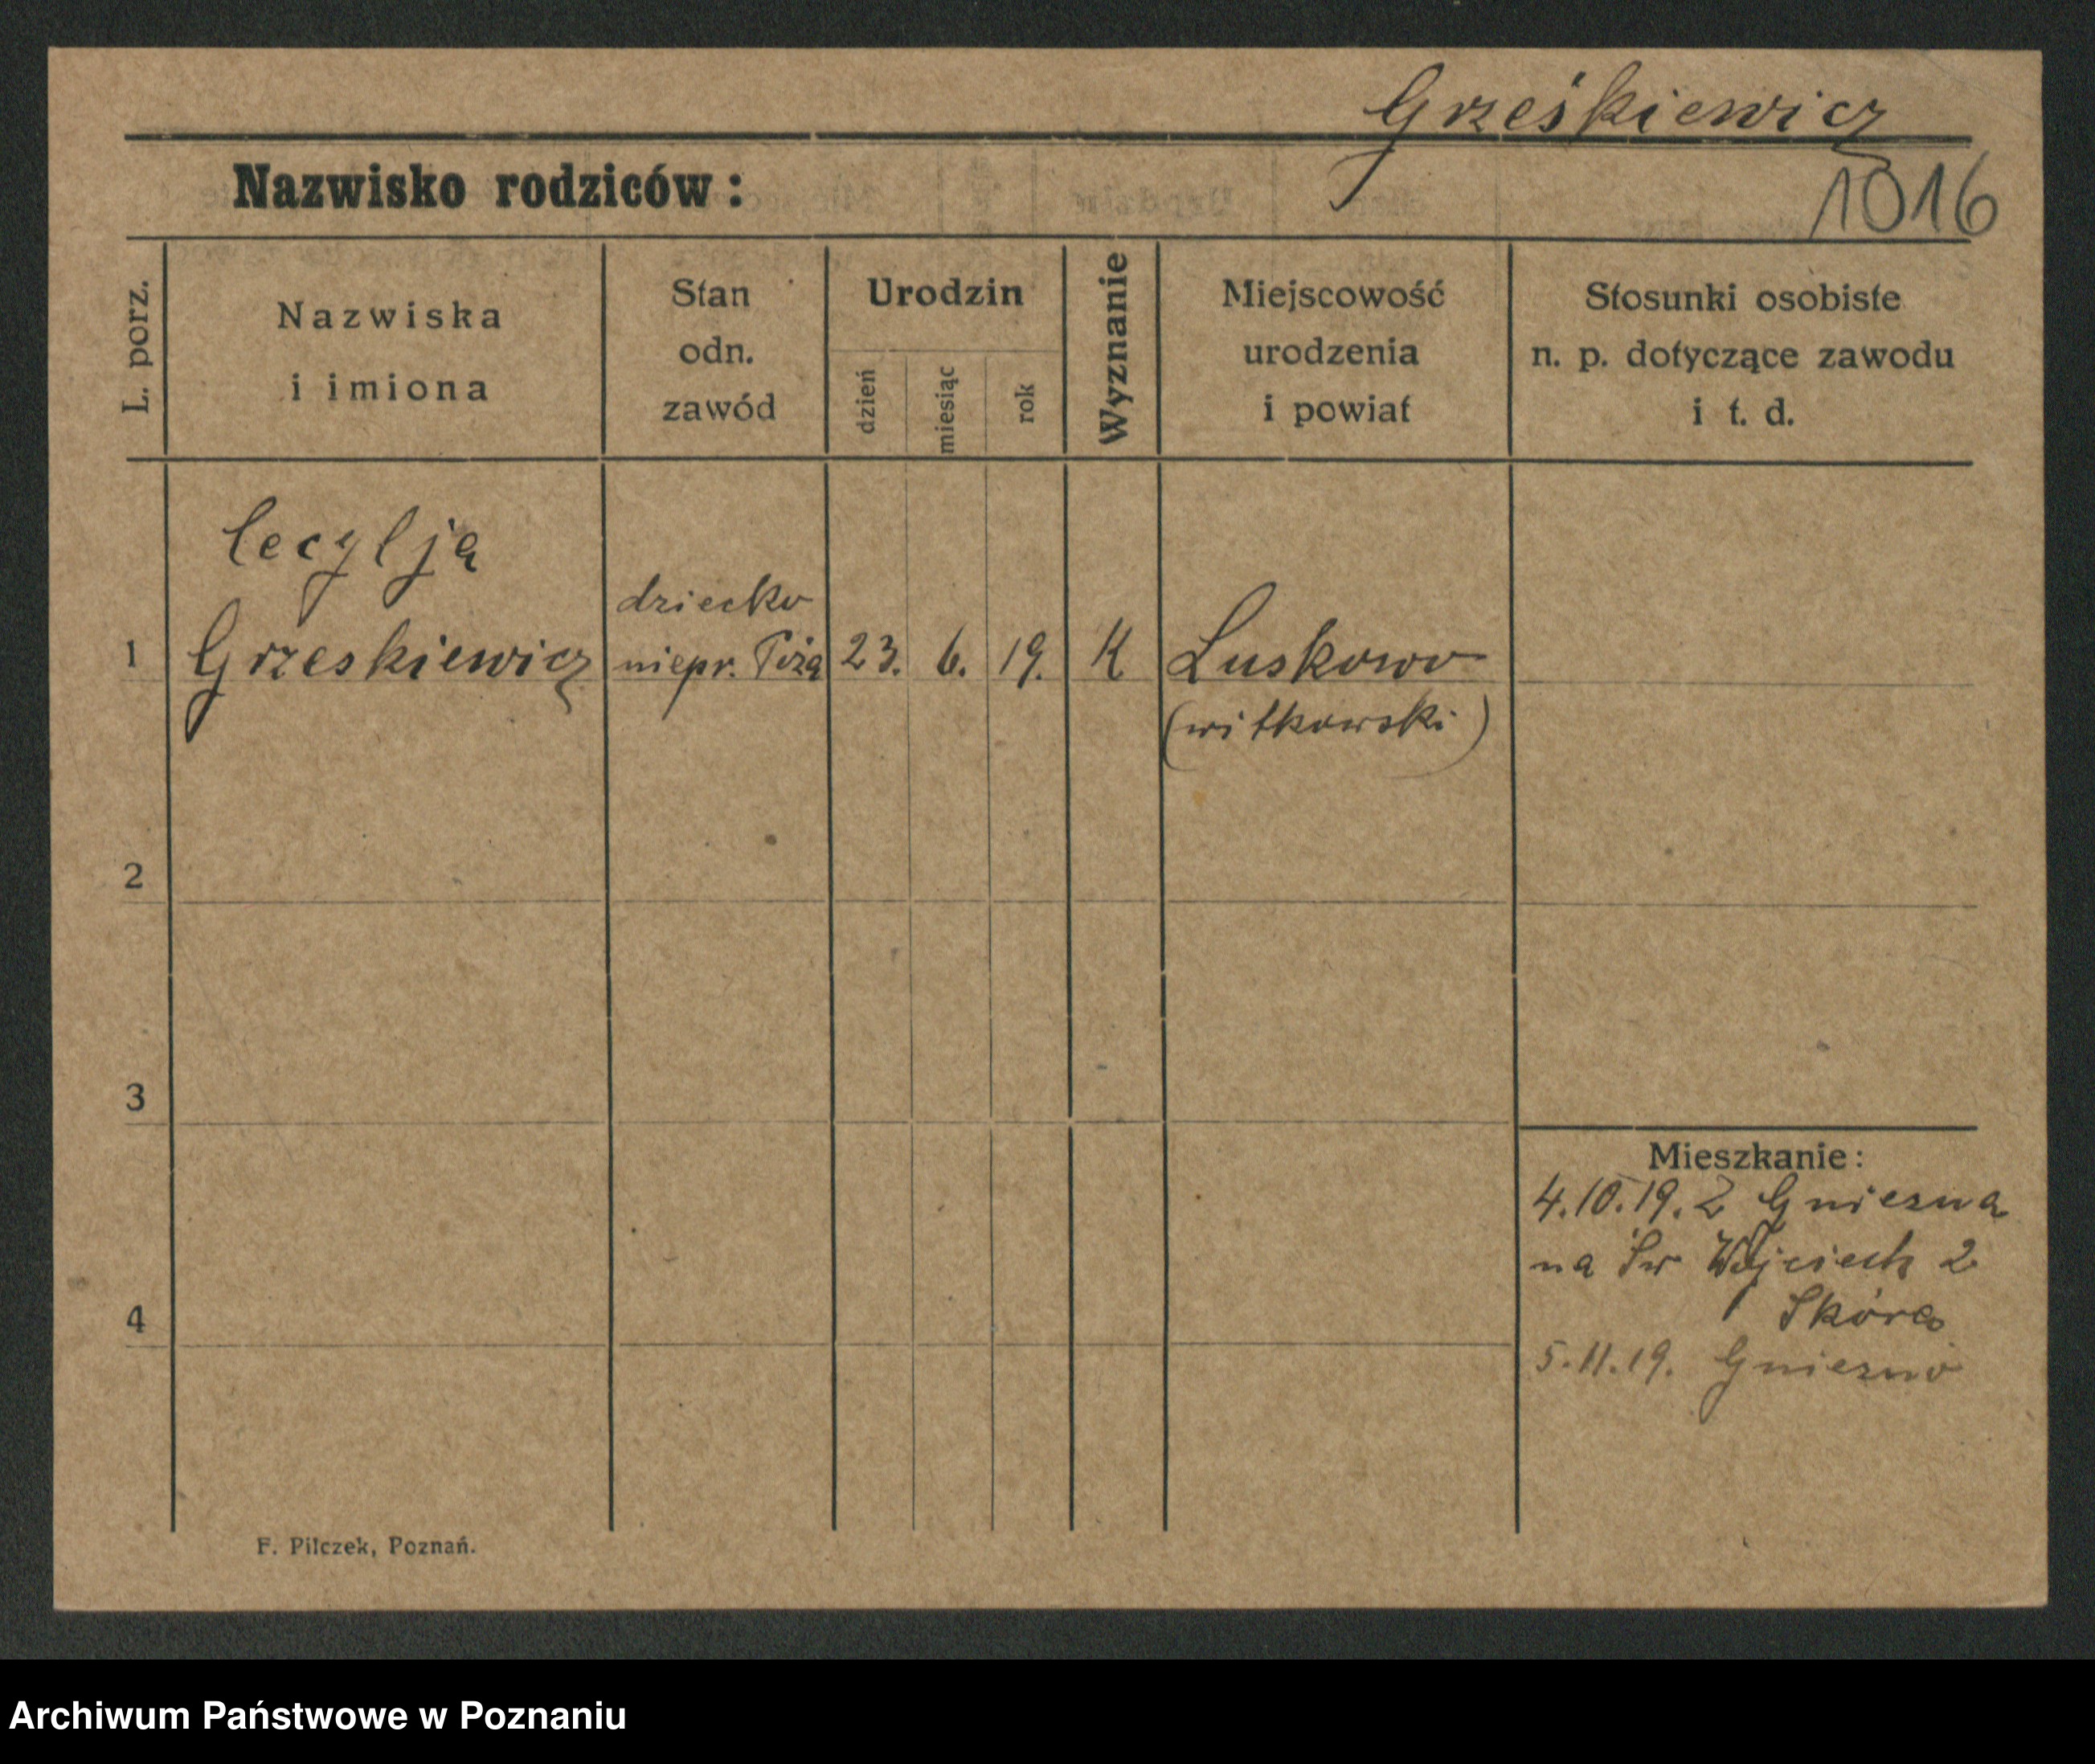 Grześkiewicz
Nazwisko rodziców:
1016
L. porz.
Nazwiska
i imiona
Stan
odn.
zawód
Urodzin
dzień
miesiąc
rok
Wyznanie
Miejscowość
urodzenia
i powiat
Stosunki osobiste
n. p. dotyczące zawodu
i t. d.
Cecylja
dziecko
1 Grzeskiewicz niepr. 23. 6. 19. K Luskowo
(witkowski)
2
3
Mieszkanie:
4.10.19. Z Gniezna
na Św Wojciech 2
4
Skóra
5.11.19. Gniezno
F. Pilczek, Poznań.
Archiwum Państwowe w Poznaniu